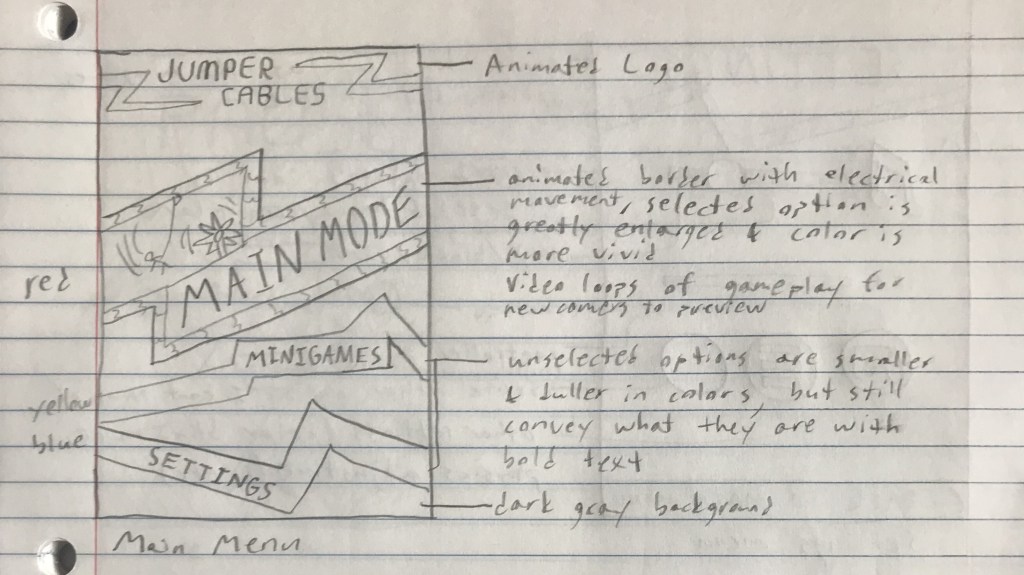 JUMPER
CABLES
Animated Logo
animated border with electrical
movement, selected option is
greatly enlarged & color is
more vivid
Video loops of gameplay for
newcomers to preview
MAIN MODE
red
MINIGAMES
unselected options are smaller
& duller in colors, but still
convey what they are with
bold text
yellow
blue
SETTINGS
dark gray background
Main Menu